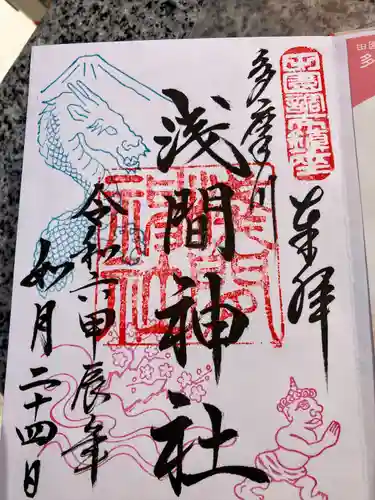 奉拝
多摩川
浅間神社
令和六甲辰年
如月二十四日
浅間神社
田園調布鎮座